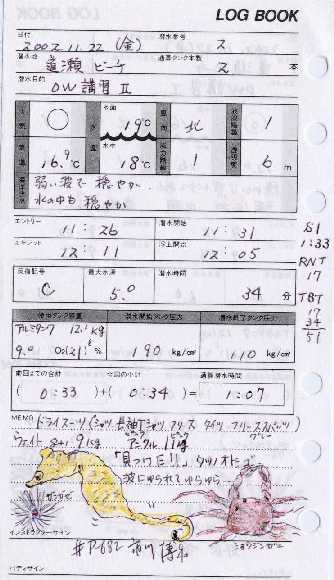 LOG BOOK
日付 2002.11.22 (金) 潜水番号 2
潜水地 道瀬ビーチ 通算タンク本数 2 本
潜水目的 OW 講習 II
天気 ○ 水温 水面 19℃ 風向 北 1
気温 16.9℃ 水中 18℃ 1 透明度 6 m
弱い波で穏やか.
水の中も穏やか
エントリー 11:26 潜水開始 11:31
エキジット 12:11 浮上開始 12:05
反復記号 C 最大水深 5.0 潜水時間 34 分
51
1:33
RNT
17
TBT
17
34
51
使用タンク容量 潜水開始タンク圧力 潜水終了タンク圧力
アルミタンク 12.1 kg
190 kg/cm² 110 kg/cm²
前回までの合計 今回の小計 通算潜水時間
( 0:33 )+( 0:34 )= 1:07
MEMO ドライスーツ (シャツ 長袖Tシャツ フリース タイツ フリーススパッツ)
ウェイト 9kg アンクル 1kg
「見っけた!!」タツノオトシゴ
波にゆられてゆらゆら
ガンガゼ
ショウジンガニ
インストラクターサイン
#P-682
バディサイン